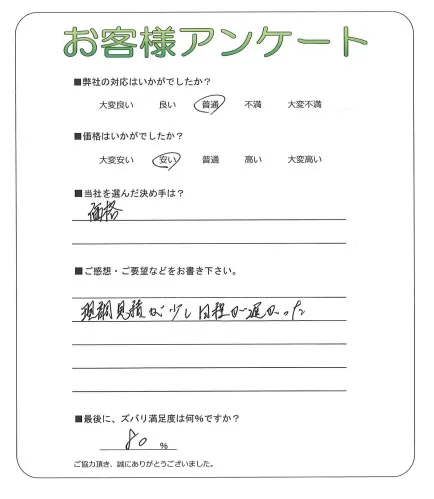 お客様アンケート
■弊社の対応はいかがでしたか？
大変良い 良い 普通 不満 大変不満
■価格はいかがでしたか？
大変安い 安い 普通 高い 大変高い
■当社を選んだ決め手は？
価格
■ご感想・ご要望などをお書き下さい。
見積が少し日程が遅かった
■最後に、ズバリ満足度は何%ですか？
80 %
ご協力頂き、誠にありがとうございました。